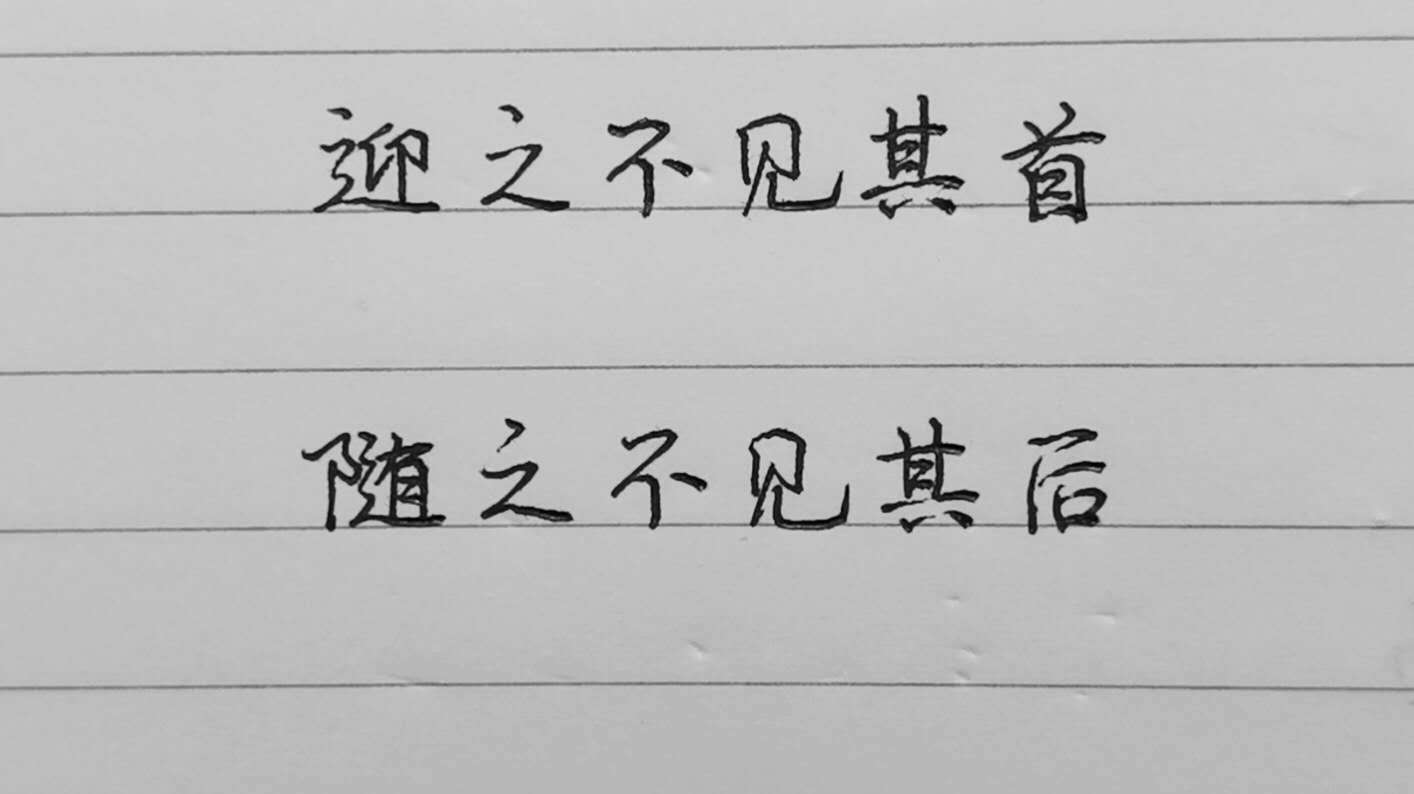 迎之不见其首
随之不见其后